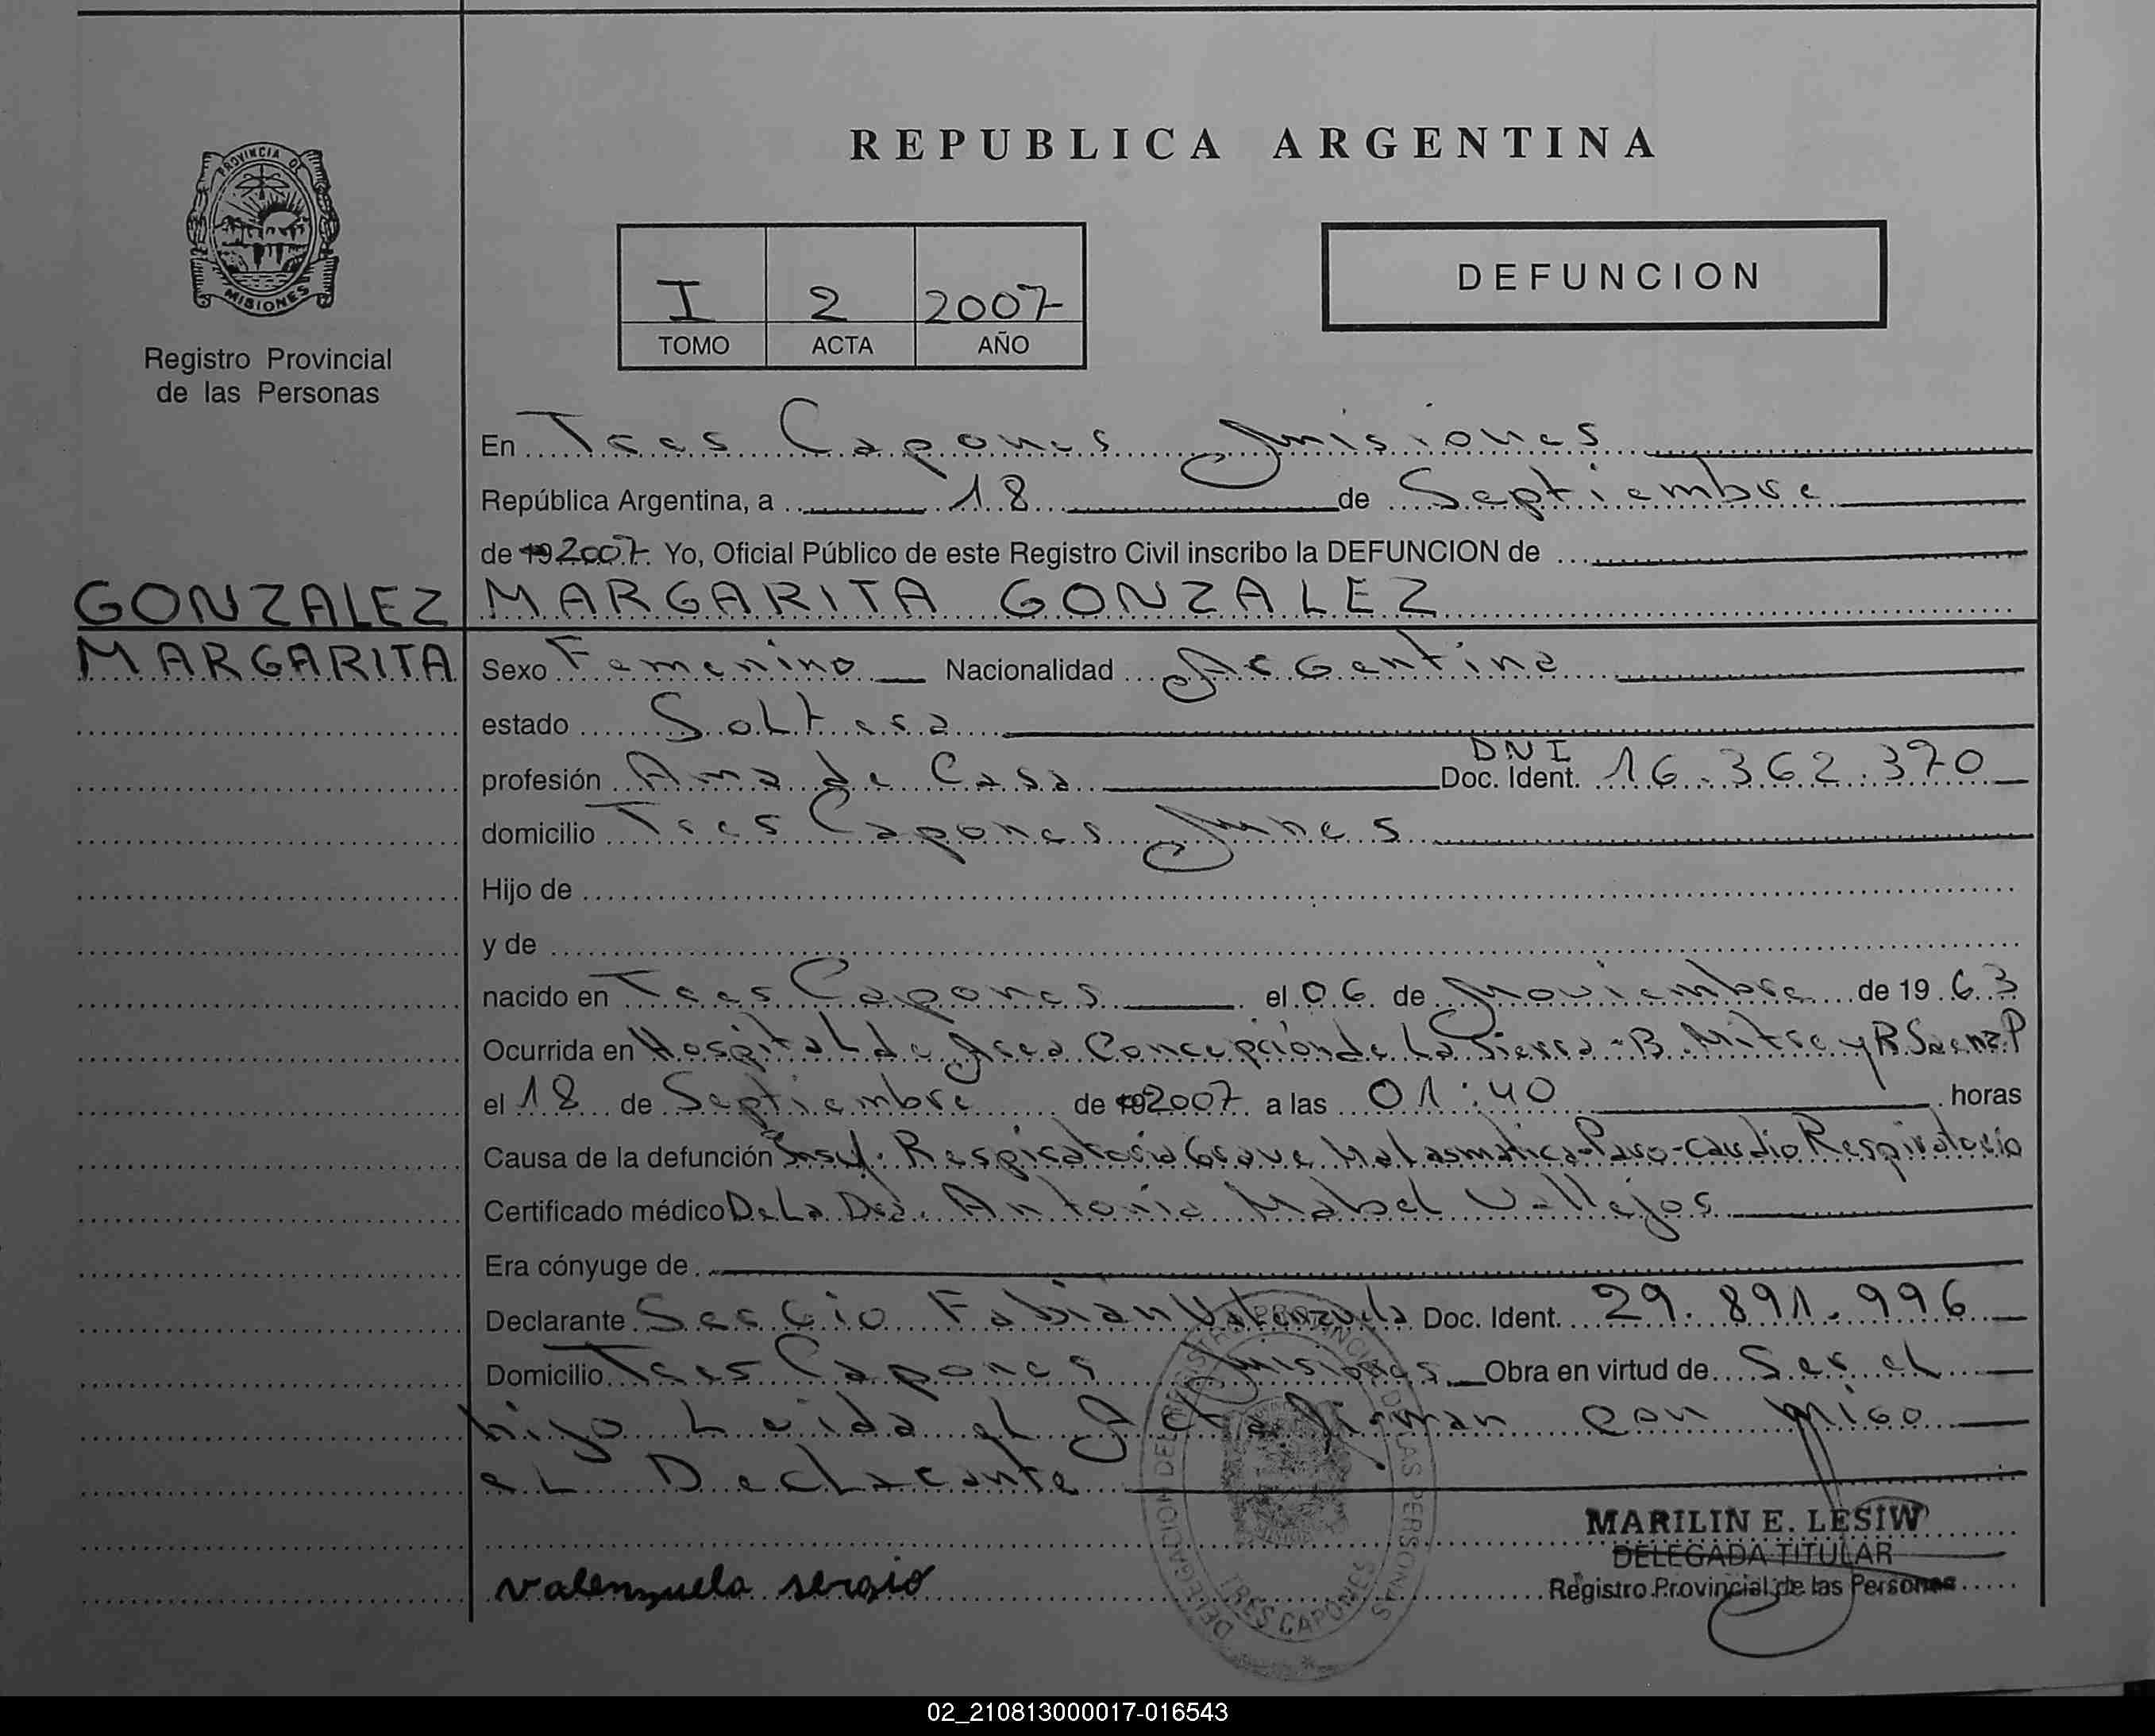 REPUBLICA ARGENTINA
PROVINCIA DE
MISIONES
Registro Provincial
de las Personas
I 2 2007
TOMO ACTA AÑO
DEFUNCION
En Tres Capones Misiones
República Argentina, a 18 de Septiembre
de 19 2007. Yo, Oficial Público de este Registro Civil inscribo la DEFUNCION de
GONZALEZ MARGARITA GONZALEZ
MARGARITA Sexo Femenino Nacionalidad Argentina
estado Soltera
profesión Ama de Casa DNI Doc. Ident. 16.362.370
domicilio Tres Capones Mnes
Hijo de
y de
nacido en Tres Capones el 06 de Noviembre de 19 63
Ocurrida en Hospital de Area Concepción de La Sierra - B. Mitre y R. Saenz P
el 18 de Septiembre de 19 2007 a las 01:40 horas
Causa de la defunción Insuf. Respiratoria Grave Mal asmatica - Paro - cardio Respiratorio
Certificado médico De La Dra. Antonia Mabel Vallejos
Era cónyuge de
Declarante Sergio Fabian Valenzuela Doc. Ident. 29.891.996
Domicilio Tres Capones Misiones Obra en virtud de Ser el
hijo Leida el Acta firman con migo
el Declarante
DELEGACION DE REGISTRO PROVINCIAL DE LAS PERSONAS
TRES CAPONES
MARILIN E. LESIW
DELEGADA TITULAR
Registro Provincial de las Personas
valenzuela sergio
02_210813000017-016543